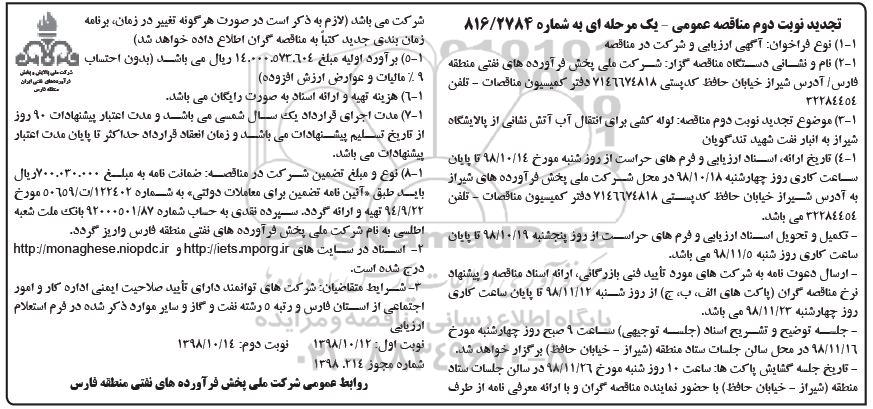 تجدید نوبت دوم مناقصه عمومی - یک مرحله ای به شماره ۸۱۶/۲۷۸۴
۱-۱) نوع فراخوان: آگهی ارزیابی و شرکت در مناقصه
۲-۱) نام و نشانی دستگاه مناقصه گزار: شرکت ملی پخش فرآورده های نفتی منطقه
فارس/ آدرس شیراز خیابان حافظ کدپستی ۷۱۴۶۶۷۴۸۱۸ دفتر کمیسیون مناقصات - تلفن
۳۲۲۸۴۴۵۴
۳-۱) موضوع تجدید نوبت دوم مناقصه: لوله کشی برای انتقال آب آتش نشانی از پالایشگاه
شیراز به انبار نفت شهید تندگویان
۴-۱) تاریخ ارائه، اسناد ارزیابی و فرم های حراست از روز شنبه مورخ ۹۸/۱۰/۱۴ تا پایان
ساعت کاری روز چهارشنبه ۹۸/۱۰/۱۸ در محل شرکت ملی پخش فرآورده های نفتی شیراز
به آدرس شیراز خیابان حافظ کدپستی ۷۱۴۶۶۷۴۸۱۸ دفتر کمیسیون مناقصات - تلفن
۳۲۲۸۴۴۵۴ می باشد.
- تکمیل و تحویل اسناد ارزیابی و فرم های حراست از روز پنجشنبه ۹۸/۱۰/۱۹ تا پایان
ساعت کاری روز شنبه ۹۸/۱۱/۵ می باشد.
- ارسال دعوت نامه به شرکت های مورد تأیید فنی بازرگانی، ارائه اسناد مناقصه و پیشنهاد
نرخ مناقصه گران (پاکت های الف، ب، ج) از روز شنبه ۹۸/۱۱/۱۲ تا پایان ساعت کاری
روز چهارشنبه ۹۸/۱۱/۲۳ می باشد.
- جلسه توضیح و تشریح اسناد (جلسه توجیهی) ساعت ۹ صبح روز چهارشنبه مورخ
۹۸/۱۱/۱۶ در محل سالن جلسات ستاد منطقه (شیراز - خیابان حافظ) برگزار خواهد شد.
- تاریخ جلسه گشایش پاکت ها: ساعت ۱۰ روز شنبه مورخ ۹۸/۱۱/۲۶ در سالن جلسات ستاد
منطقه (شیراز - خیابان حافظ) با حضور نماینده مناقصه گران و با ارائه معرفی نامه از طرف
شرکت می باشد (لازم به ذکر است در صورت هرگونه تغییر در زمان، برنامه
زمان بندی جدید کتباً به مناقصه گران اطلاع داده خواهد شد)
۵-۱) برآورد اولیه مبلغ ۱۴.۰۰۰.۵۷۳.۶۰۴ ریال می باشد (بدون احتساب
۹ % مالیات و عوارض ارزش افزوده)
۶-۱) هزینه تهیه و ارائه اسناد به صورت رایگان می باشد.
۷-۱) مدت اجرای قرارداد یک سال شمسی می باشد و مدت اعتبار پیشنهادات ۹۰ روز
از تاریخ تسلیم پیشنهادات می باشد و زمان انعقاد قرارداد حداکثر تا پایان مدت اعتبار
پیشنهادات می باشد.
۸-۱) نوع و مبلغ تضمین شرکت در مناقصه: ضمانت نامه به مبلغ ۷۰۰.۰۳۰.۰۰۰ریال
باید طبق «آئین نامه تضمین برای معاملات دولتی» به شماره ۱۲۳۴۰۲/ت/۵۰۶۵۹ مورخ
۹۴/۹/۲۲ تهیه و ارائه گردد. سپرده نقدی به حساب شماره ۹۲۰۰۰۵۰۱/۸۷ بانک ملت شعبه
اطلسی به نام شرکت ملی پخش فرآورده های نفتی منطقه فارس واریز گردد.
۲- اسناد در سایت های http://iets.mporg.ir و http://monaghese.niopdc.ir
درج شده است.
۳- شرایط متقاضیان: شرکت های توانمند دارای تأیید صلاحیت ایمنی اداره کار و امور
اجتماعی از استان فارس و رتبه ۵ رشته نفت و گاز و سایر موارد ذکر شده در فرم استعلام
ارزیابی
نوبت اول: ۱۳۹۸/۱۰/۱۲ نوبت دوم: ۱۳۹۸/۱۰/۱۴
شماره مجوز ۲۱۴. ۱۳۹۸
روابط عمومی شرکت ملی پخش فرآورده های نفتی منطقه فارس
شرکت ملی پالایش و پخش
فرآورده های نفتی ایران
منطقه فارس
پایگاه اطلاع رسانی مناقصه و مزایده